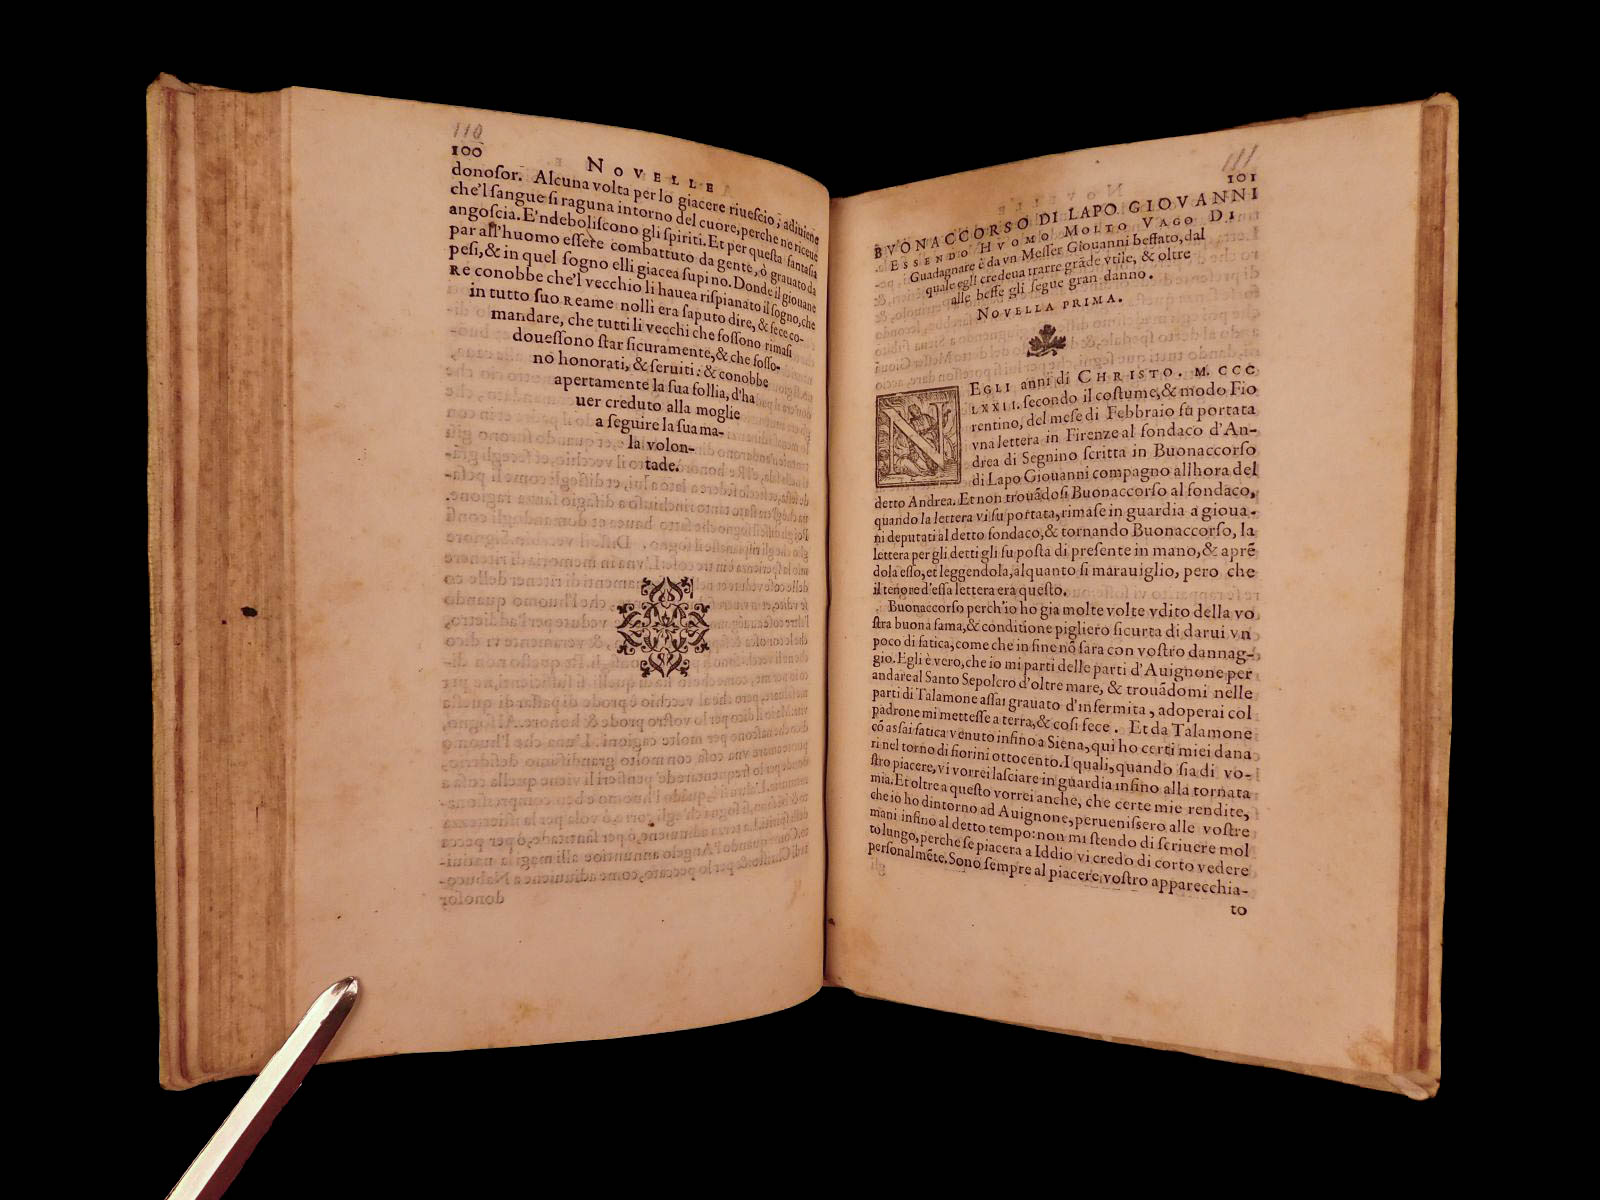 110
100
NOVELLE
donosor. Alcuna volta per lo giacere riuescio, adiuiene
che'l sangue si raguna intorno del cuore, perche ne riceue
angoscia. E'ndeboliscono gli spiriti. Et per questa fantasia
par all'huomo essere combattuto da gente, ò grauato da
pesi, & in quel sogno elli giacea supino. Donde il giouane
Re conobbe che'l vecchio li hauea rispianato il sogno, che
in tutto suo Reame nolli era saputo dire, & fece co-
mandare, che tutti li vecchi che fossono rimasi
douessono star sicuramente, & che fosso-
no honorati, & seruiti: & conobbe
apertamente la sua follia, d'ha
uer creduto alla moglie
a seguire la sua ma-
la volon-
tade.
111
101
BVONACCORSO DI LAPO GIOVANNI
ESSENDO HVOMO MOLTO VAGO DI
Guadagnare è da vn Messer Giouanni beffato, dal
quale egli credeua trarre grāde vtile, & oltre
alle beffe gli segue gran danno.
NOVELLA PRIMA.
NEGLI anni di CHRISTO. M. CCC
LXXII. secondo il costume, & modo Fio
rentino, del mese di Febbraio fu portata
vna lettera in Firenze al fondaco d'An-
drea di Segnino scritta in Buonaccorso
di Lapo Giouanni compagno allhora del
detto Andrea. Et non trouādosi Buonaccorso al fondaco,
quando la lettera vi fu portata, rimase in guardia a gioua-
ni deputati al detto fondaco, & tornando Buonaccorso, la
lettera per gli detti gli fu posta di presente in mano, & aprē
dola esso, et leggendola, alquanto si marauiglio, pero che
il tenore d'essa lettera era questo.
Buonaccorso perch'io ho gia molte volte vdito della vo
stra buona fama, & conditione pigliero sicurta di darui vn
poco di fatica, come che in fine nō sara con vostro dannag-
gio. Egli è vero, che io mi parti delle parti d'Auignone per
andare al Santo Sepolcro d'oltre mare, & trouādomi nelle
parti di Talamone assai grauato d'infermita, adoperai col
padrone mi mettesse a terra, & cosi fece. Et da Talamone
cō assai fatica venuto infino a Siena, qui ho certi miei dana
ri nel torno di fiorini ottocento. I quali, quando sia di vo-
stro piacere, vi vorrei lasciare in guardia infino alla tornata
mia. Et oltre a questo vorrei anche, che certe mie rendite,
che io ho dintorno ad Auignone, peruenissero alle vostre
mani infino al detto tempo: non mi stendo di scriuere mol
to lungo, perche se piacera a Iddio vi credo di corto vedere
personalmēte. Sono sempre al piacere vostro apparecchia-
to